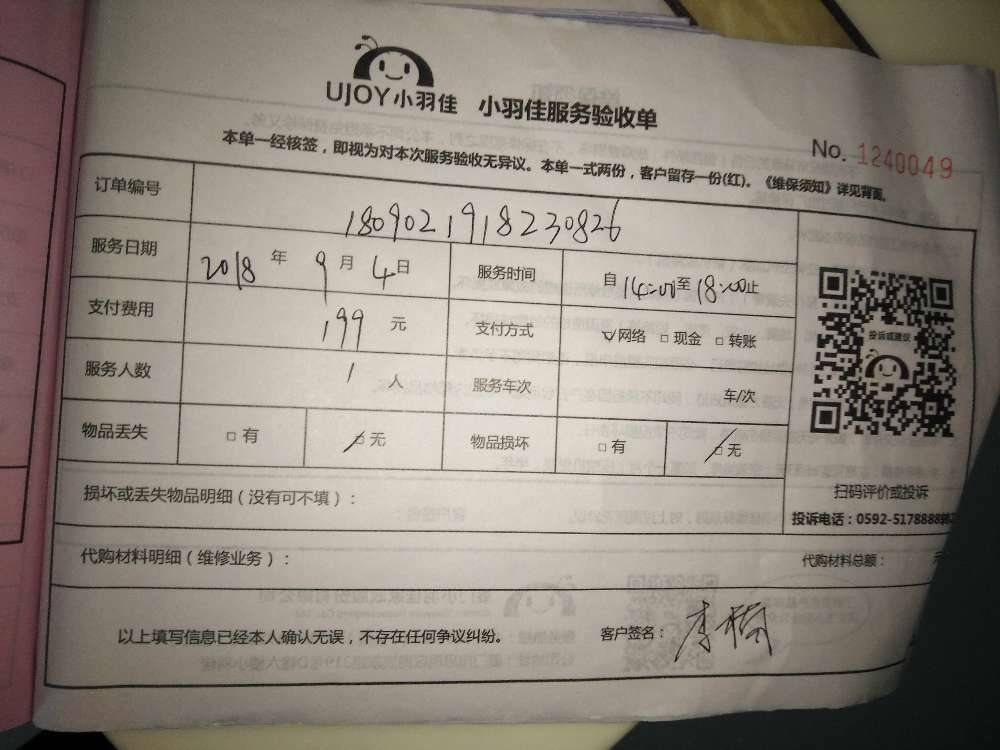 UJOY小羽佳 小羽佳服务验收单
No. 1240049
本单一经核签，即视为对本次服务验收无异议。本单一式两份，客户留存一份(红)。《维保须知》详见背面。
订单编号 180902191823082​6
服务日期 2018 年 9 月 4 日 服务时间 自 14:00 至 18:00 止
支付费用 199 元 支付方式 ☑网络 □ 现金 □ 转账
投诉或建议
服务人数 1 人 服务车次 车/次
物品丢失 □ 有 ☑ 无 物品损坏 □ 有 ☑ 无
扫码评价或投诉
损坏或丢失物品明细（没有可不填）：
投诉电话：0592-5178888转
代购材料明细（维修业务）： 代购材料总额： 元
以上填写信息已经本人确认无误，不存在任何争议纠纷。 客户签名： 李